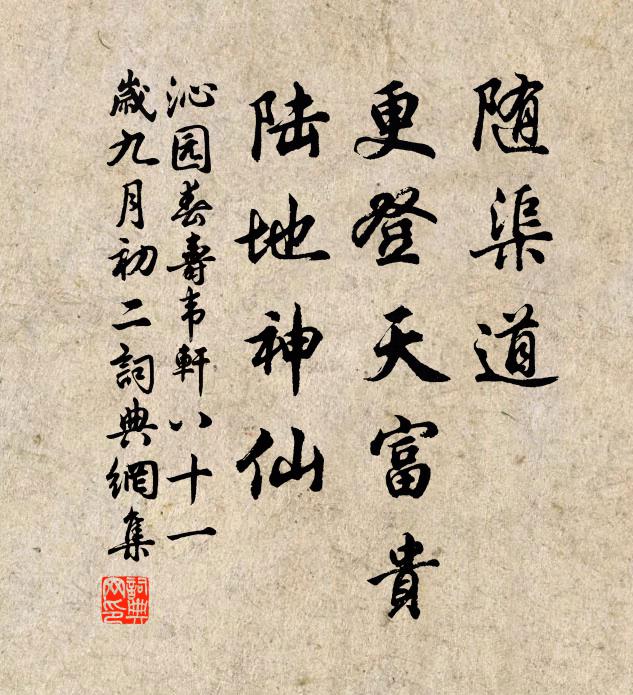 随渠道
更登天富貴
陆地神仙
沁园春寿韦軒八十一
歲九月初二詞典網集